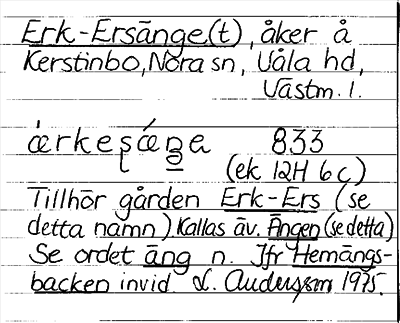 Erk-Ersänge(t), åker å
Kerstinbo, Nora sn, Våla hd,
Västm. l.
ǽrkeʂǽŋ̲a 833
(ek 12H 6c)
Tillhör gården Erk-Ers (se
detta namn) Kallas äv. Ängen (se detta)
Se ordet äng n. Jfr Hemängs-
backen invid. L. Andersson 1975.